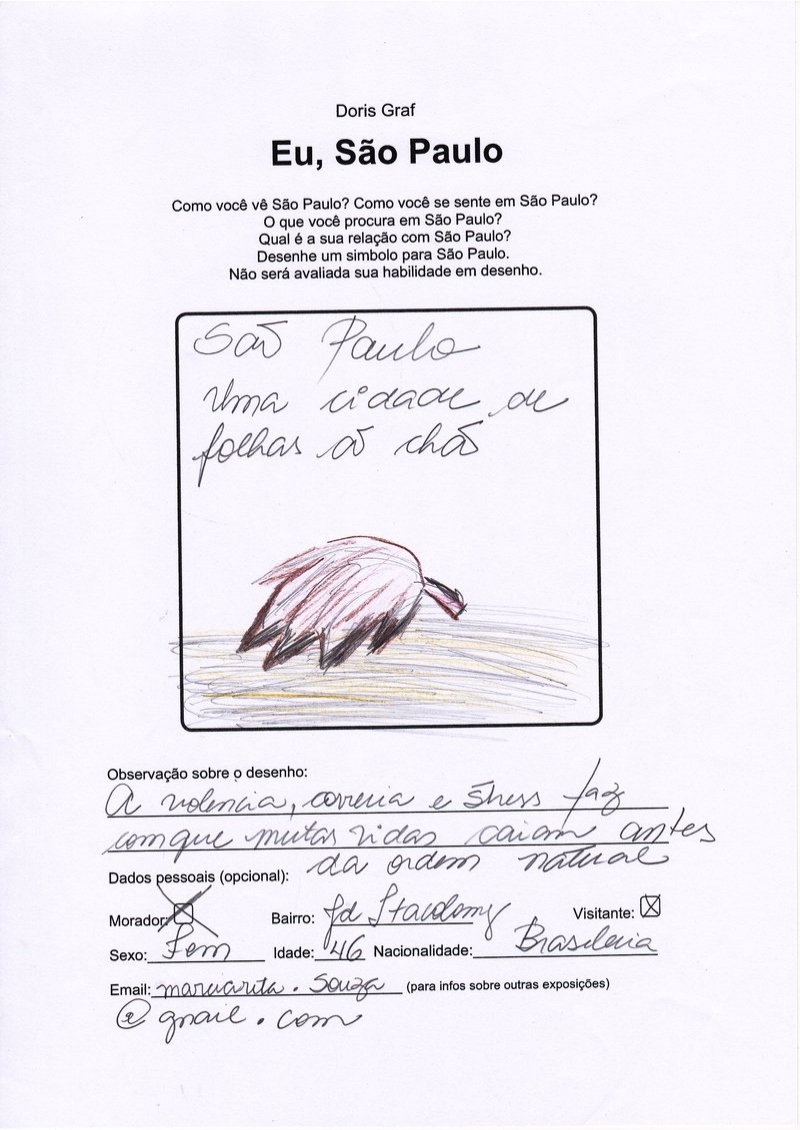 Doris Graf
Eu, São Paulo
Como você vê São Paulo? Como você se sente em São Paulo?
O que você procura em São Paulo?
Qual é a sua relação com São Paulo?
Desenhe um simbolo para São Paulo.
Não será avaliada sua habilidade em desenho.
São Paulo
Uma cidade de
folhas ao chão
Observação sobre o desenho:
A violencia, correria e stress faz
com que muitas vidas caiam antes
da ordem natural
Dados pessoais (opcional):
Morador: Bairro: Jd Visitante:
Sexo: Fem Idade: 46 Nacionalidade: Brasileira
Email: margarita.souza (para infos sobre outras exposições)
@gmail.com